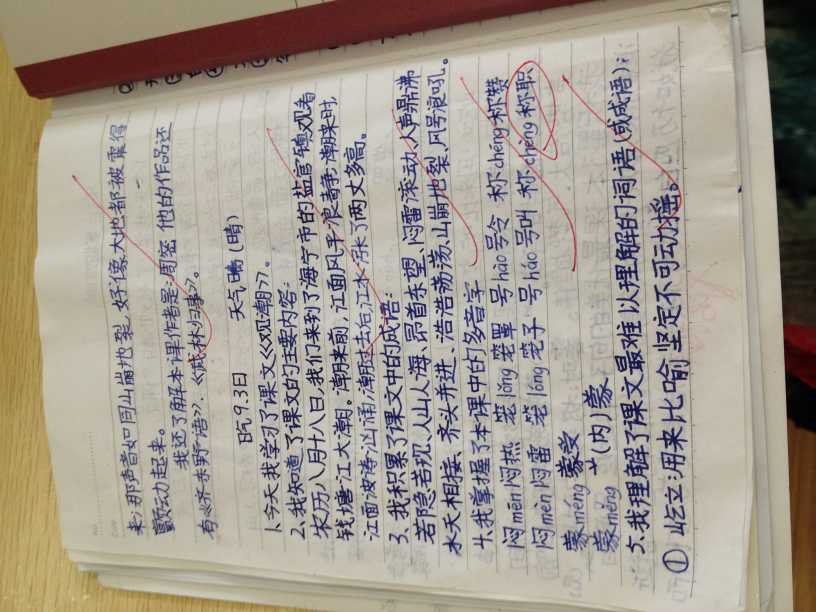 来；那声音如同山崩地裂，好像大地都被震得
颤动起来。
我还了解本课作者是：周密 他的作品还
有《齐东野语》.《武林归事》。
9.3日 天气 晴(晴)
1、今天我学习了课文《观潮》。
2、我知道了课文的主要内容：
农历八月十八日，我们来到了海宁市的盐官镇观看
钱塘江大潮。潮来前，江面风平浪静，潮来时，
江面波涛汹涌，潮过去后，江水涨了两丈多高。
3、我积累了课文中的成语：
若隐若现、人山人海、昂首东望、闷雷滚动、人声鼎沸
水天相接、齐头并进、浩浩荡荡、山崩地裂、风号浪吼。
4、我掌握了本课中的多音字
闷mēn闷热 笼lǒng笼罩 号hào号令 称chēng称赞
闷mèn闷雷 笼lóng笼子 号háo号叫 称chèng称职
蒙méng蒙受
蒙měng (内)蒙
5、我理解了课文最难以理解的词语(或成语)：
① 屹立：用来比喻坚定不可动摇。